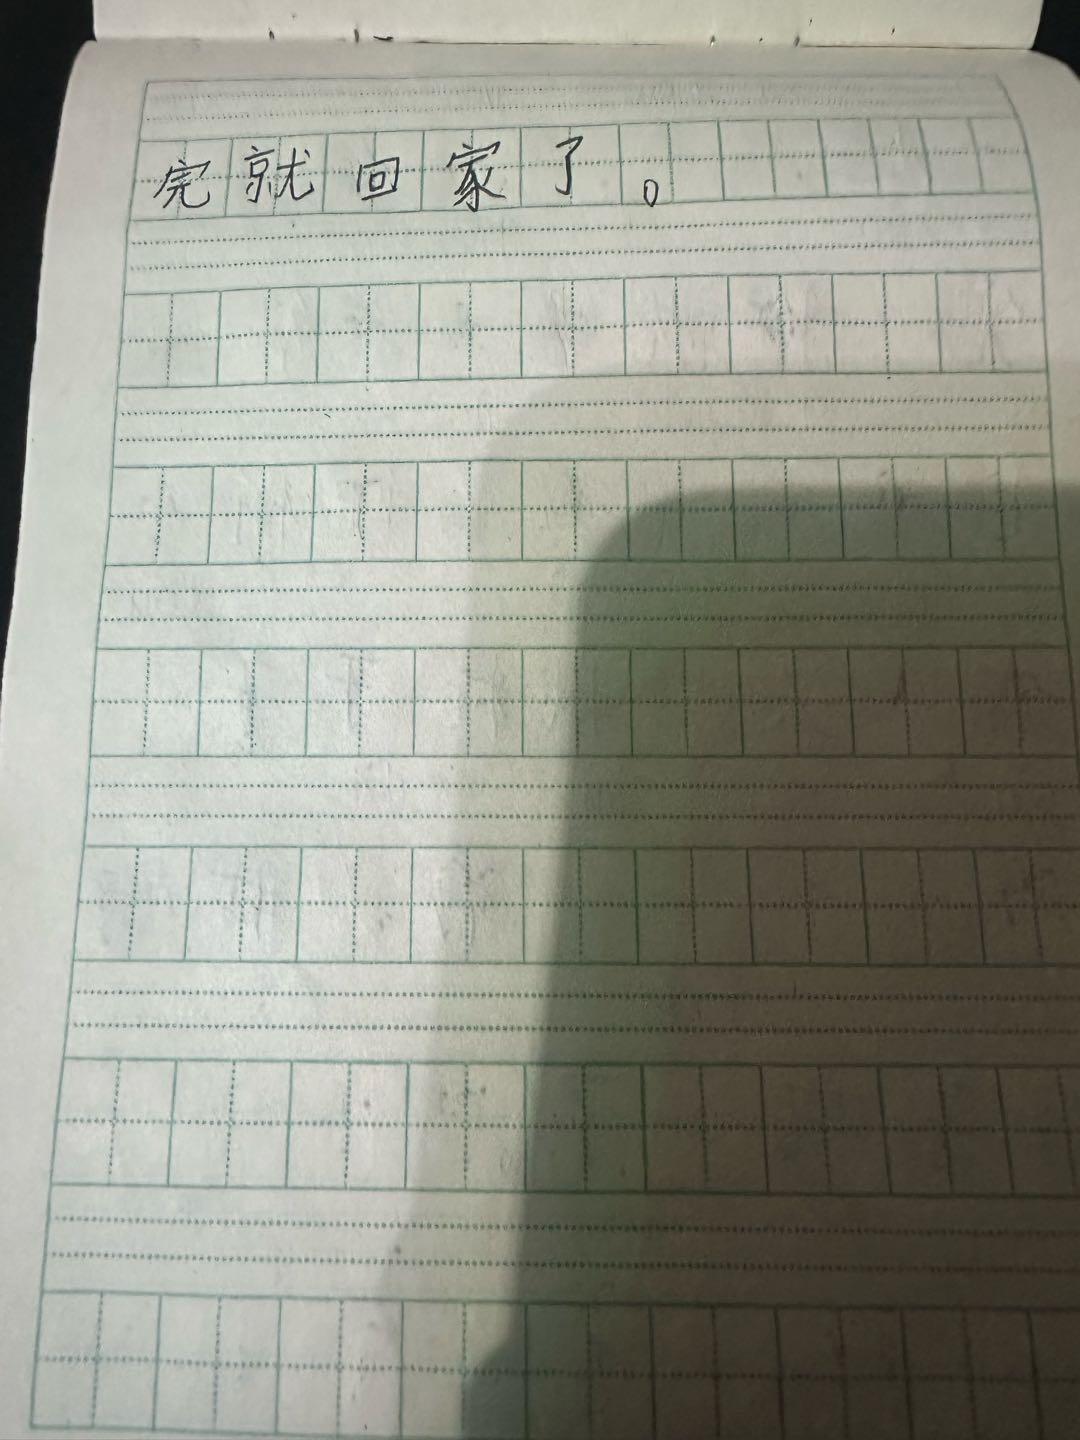 完就回家了。